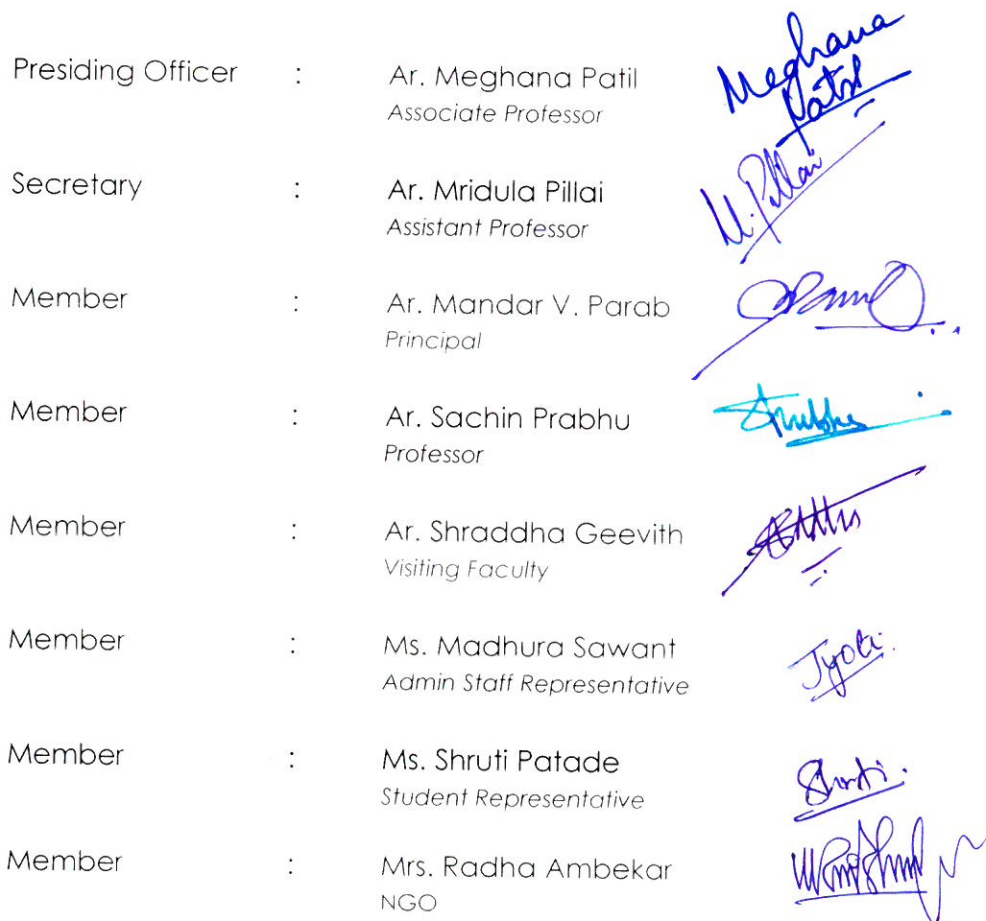 Presiding Officer : Ar. Meghana Patil Meghana
Associate Professor Patil
Secretary : Ar. Mridula Pillai M. Pillai
Assistant Professor
Member : Ar. Mandar V. Parab
Principal
Member : Ar. Sachin Prabhu
Professor
Member : Ar. Shraddha Geevith
Visiting Faculty
Member : Ms. Madhura Sawant Jyoti
Admin Staff Representative
Member : Ms. Shruti Patade Shruti
Student Representative
Member : Mrs. Radha Ambekar
NGO